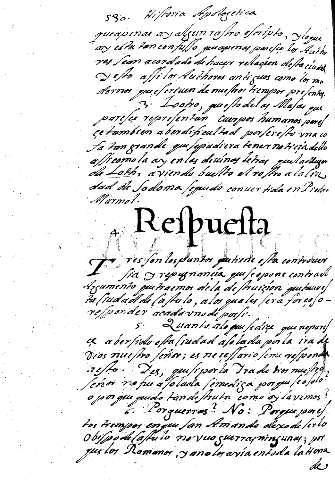 580. Historia Apologetica
que apenas ay algun rastro escripto, y lo que
ay esta tan confusso que apenas parese los Autho
res sean acordado de hacer relacion desta ciudad
y esto assi los Authores antiguos como los mo
dernos que escriuen de nuestros tiempos presentes.
3. Lo otro, questo de las Masas que
parese representan cuerpos humanos parese
se tambien aber dificultad por ser esta vna co
sa tan grande que se pudiera tener noticia della
assi como la ay en las divinas letras que la Muger
de Loth, aviendo buelto el rostro a la ciu
dad de Sodoma, se pudo convertida en Piedra
Marmol.
4. Respuesta
Tres son los puntos que tiene esta controuer
sia y repugnancia, que se opone contra el
argumento que traemos de la destruizion que tuvo es
ta ciudad de Castulo, a los quales sera forçoso
responder a cada vno de por si.
5. Quanto a lo que se dize que no pares
e aber sido esta ciudad asolada por la ira de
Dios nuestro señor, es necessario sena responda
a esto. Pues, que si por la Ira de Dios nuestro
señor no fue assolada se me diga por que se asolo
o por que pudo tan destruta como oy la vemos?
6. Por guerras? No: Porque por es
tos tiempos en que san Amando dexo de ser lo
Obispo de Castulo no vuo guerras ningunas; por
que los Romanos, ya no los avia en toda la tierra
de